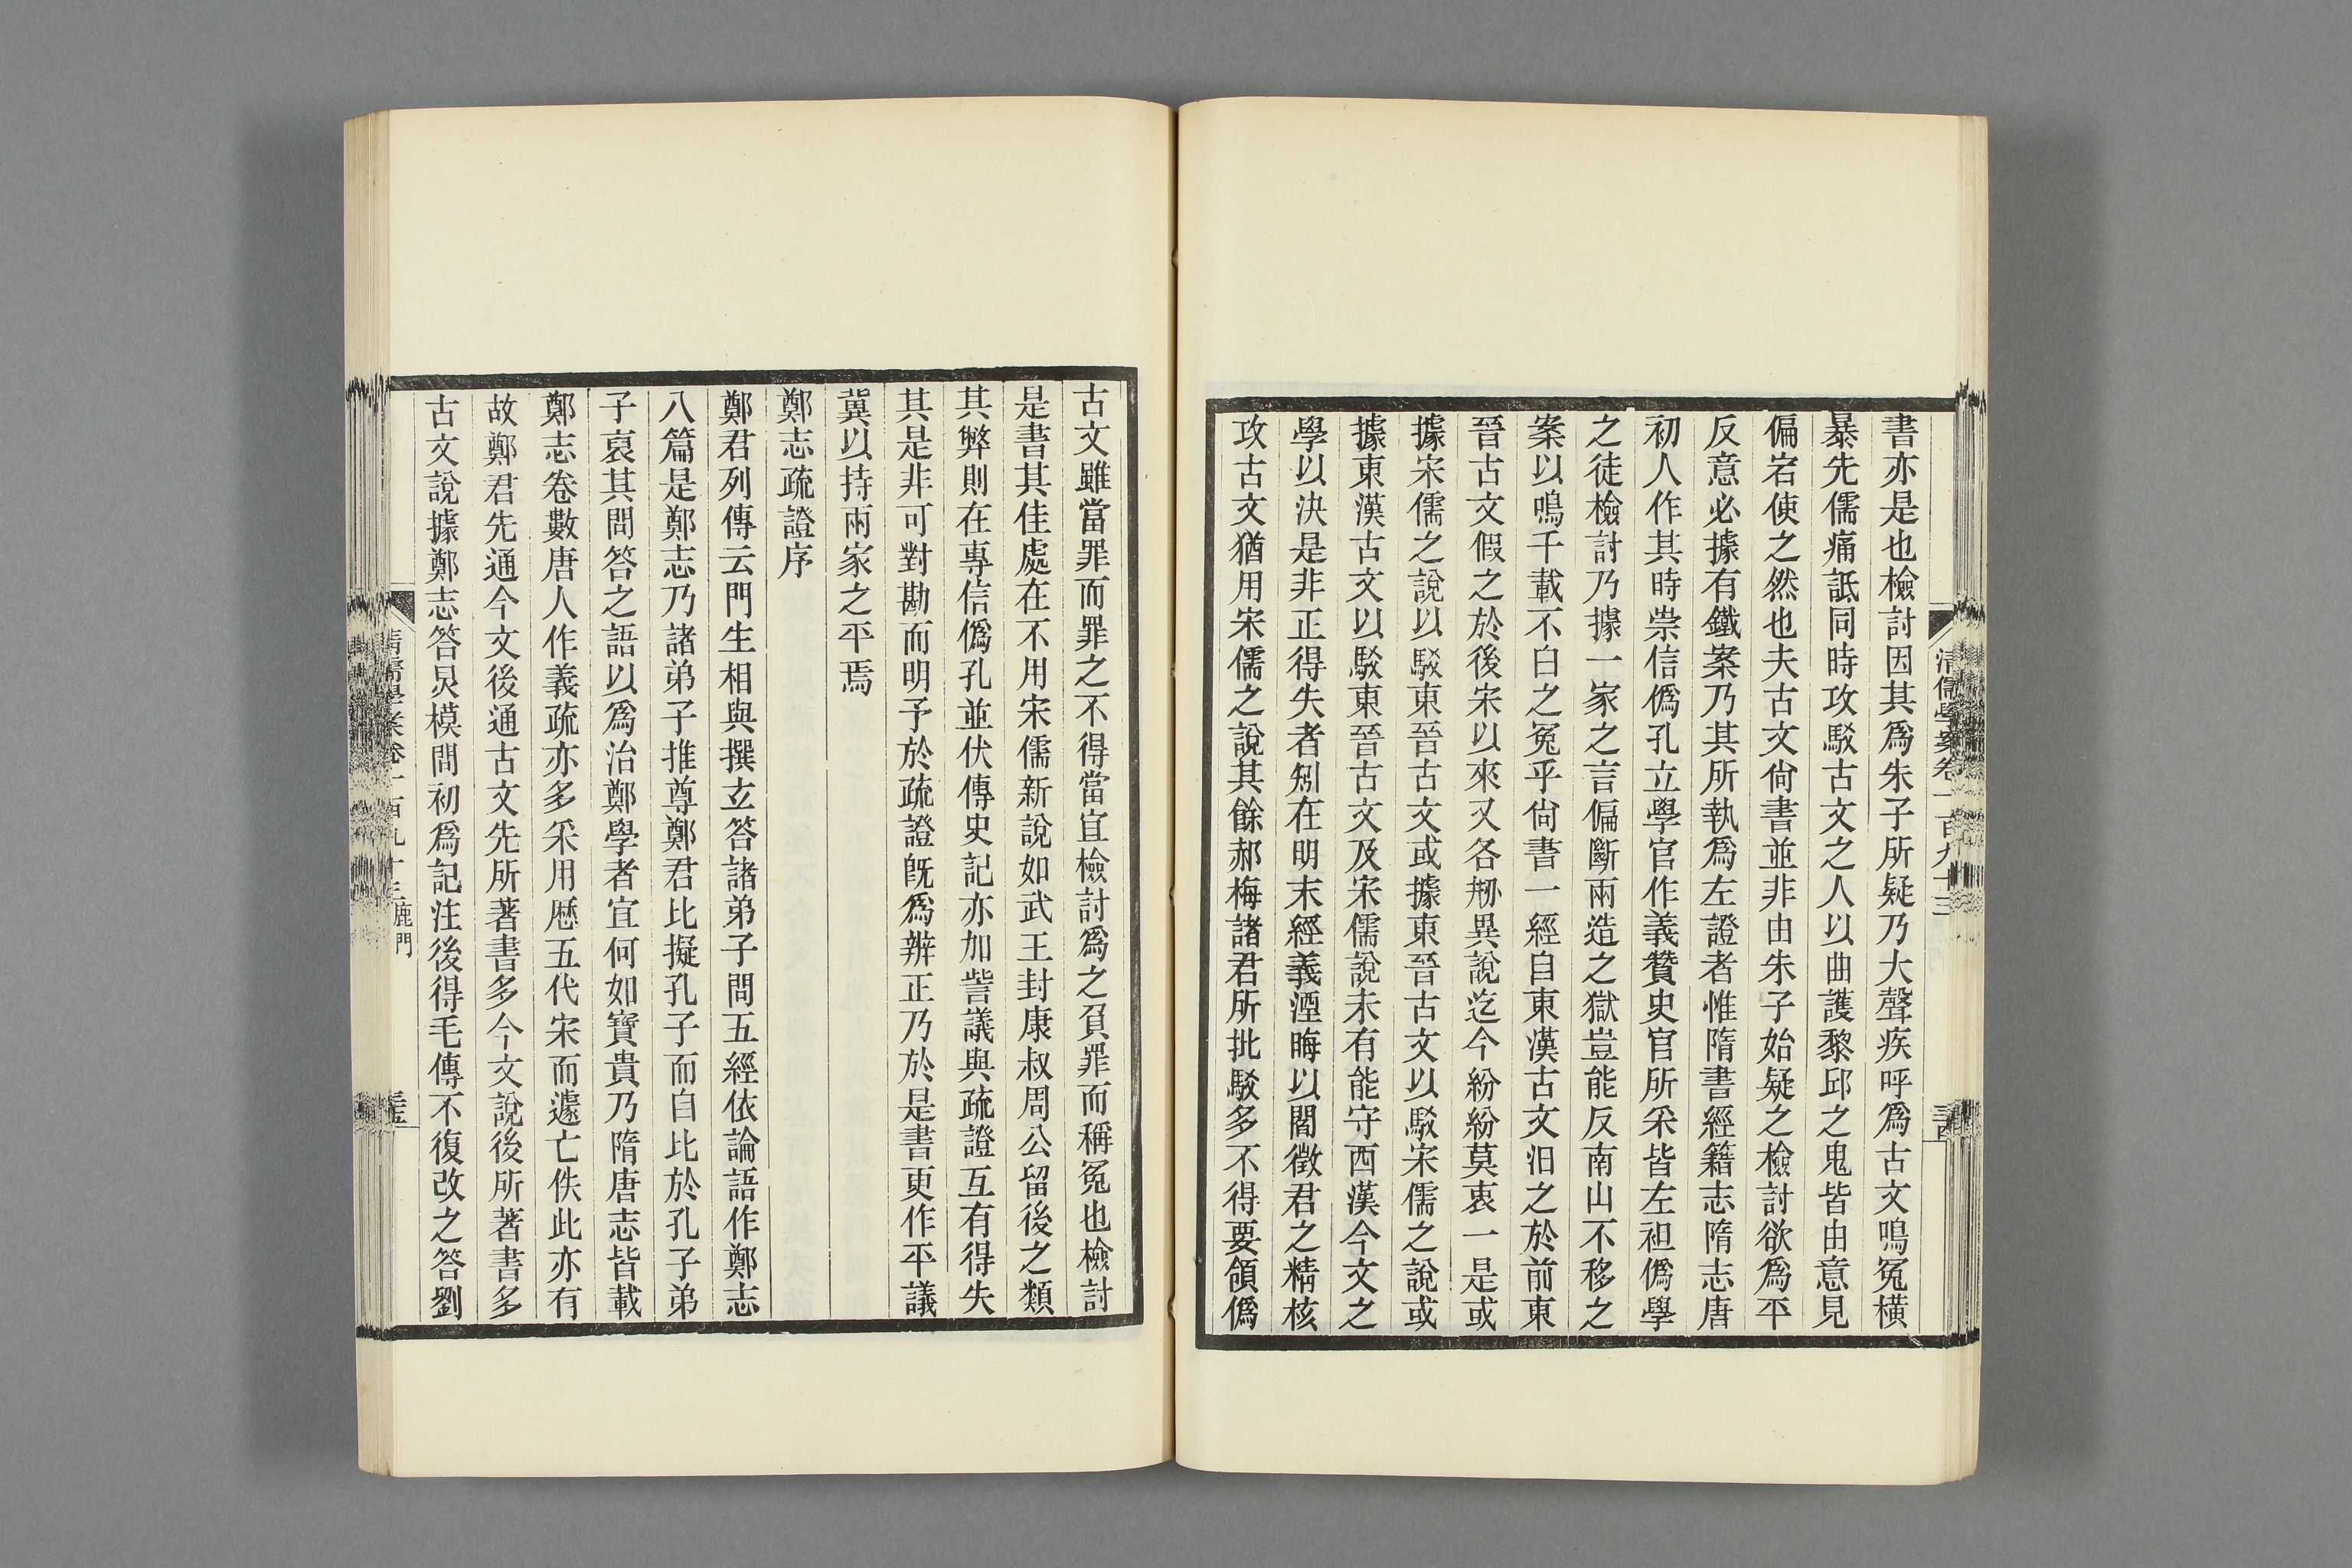 書亦是也檢討因其爲朱子所疑乃大聲疾呼爲古文鳴冤橫
暴先儒痛詆同時攻駁古文之人以曲護黎邱之鬼皆由意見
偏宕使之然也夫古文尙書並非由朱子始疑之檢討欲爲平
反意必據有鐵案乃其所執爲左證者惟隋書經籍志隋志唐
初人作其時崇信僞孔立學官作義贊史官所采皆左袒僞學
之徒檢討乃據一家之言偏斷兩造之獄豈能反南山不移之
案以鳴千載不白之冤乎尙書一經自東漢古文汩之於前東
晉古文假之於後宋以來又各刱異說迄今紛紛莫衷一是或
據宋儒之說以駁東晉古文或據東晉古文以駁宋儒之說或
據東漢古文以駁東晉古文及宋儒說未有能守西漢今文之
學以決是非正得失者矧在明末經義湮晦以閻徵君之精核
攻古文猶用宋儒之說其餘郝梅諸君所批駁多不得要領僞
清儒學案卷一百九十三
古文雖當罪而罪之不得當宜檢討爲之負罪而稱冤也檢討
是書其佳處在不用宋儒新說如武王封康叔周公留後之類
其弊則在專信僞孔並伏傳史記亦加訾議與疏證互有得失
其是非可對勘而明予於疏證旣爲辨正乃於是書更作平議
冀以持兩家之平焉
鄭志疏證序
鄭君列傳云門生相與撰玄答諸弟子問五經依論語作鄭志
八篇是鄭志乃諸弟子推尊鄭君比擬孔子而自比於孔子弟
子裒其問答之語以爲治鄭學者宜何如寶貴乃隋唐志皆載
鄭志卷數唐人作義疏亦多采用歷五代宋而遽亡佚此亦有
故鄭君先通今文後通古文先所著書多今文說後所著書多
古文說據鄭志答炅模問初爲記注後得毛傳不復改之答劉
清儒學案卷一百九十三 鹿門